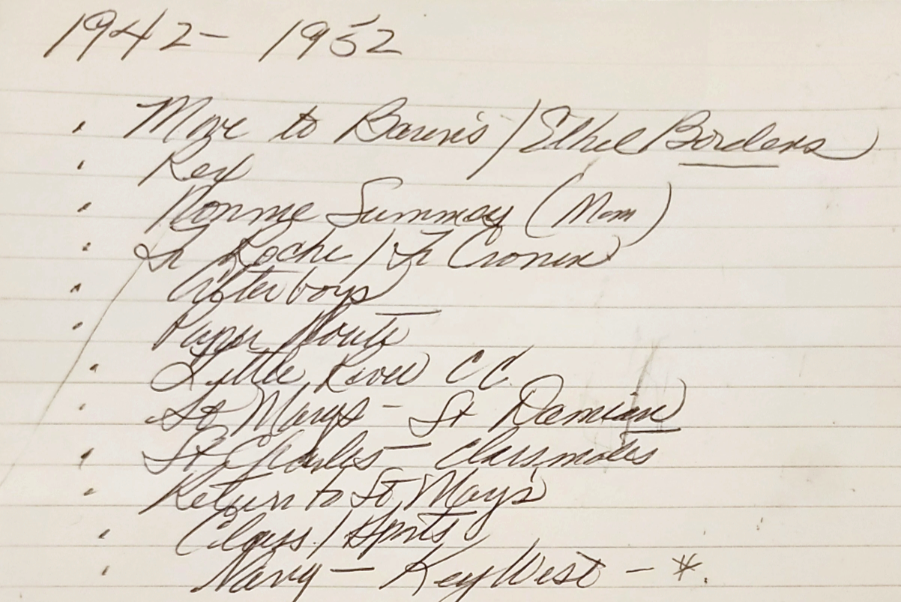 1942 - 1952
· Move to / Ethel Bordens
· Rex
· Nonnie Summey (Mom)
· Fr Roche / Fr Cronin
· Afterboys
· Paper Route
· Little River CC.
· St Marys - St Damian
· St Charles - Classmates
· Return to St Mary's
· Class / Sports
· Navy - Key West - *.